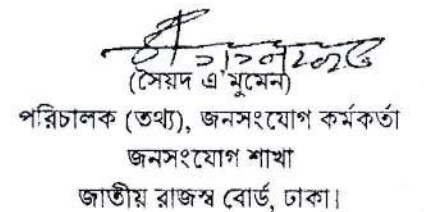 (সৈয়দ এ মুমেন)
পরিচালক (তথ্য), জনসংযোগ কর্মকর্তা
জনসংযোগ শাখা
জাতীয় রাজস্ব বোর্ড, ঢাকা।